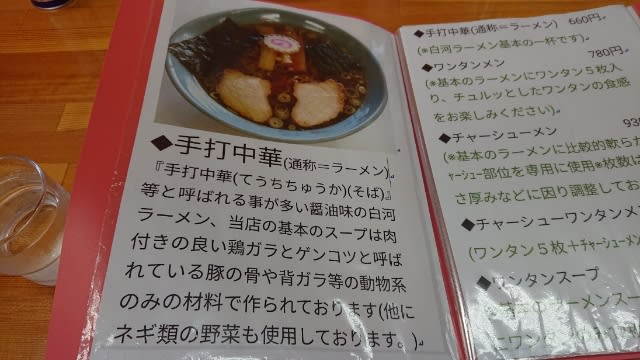 ◆手打中華(通称＝ラーメン)
『手打中華(てうちちゅうか)(そば)』
等と呼ばれる事が多い醤油味の白河
ラーメン、当店の基本のスープは肉
付きの良い鶏ガラとゲンコツと呼ば
れている豚の骨や背ガラ等の動物系
のみの材料で作られております(他に
ネギ類の野菜も使用しております。)
◆手打中華(通称＝ラーメン) 660円
(※白河ラーメン基本の一杯です)
◆ワンタンメン 780円
(※基本のラーメンにワンタン５枚入
り、チュルッとしたワンタンの食感
をお楽しみください)
◆チャーシューメン 93
(※基本のラーメンに比較的軟らか
ﾁｬｰｼｭｰ部位を専用に使用※枚数は
さ厚みなどに因り調整してお
◆チャーシューワンタンメ
(ワンタン５枚＋ﾁｬｰｼｭｰﾒﾝ
◆ワンタンスープ
のラーメンスー
にワンタン